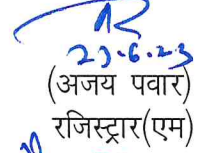 23.6.23
(अजय पवार)
रजिस्ट्रार(एम)